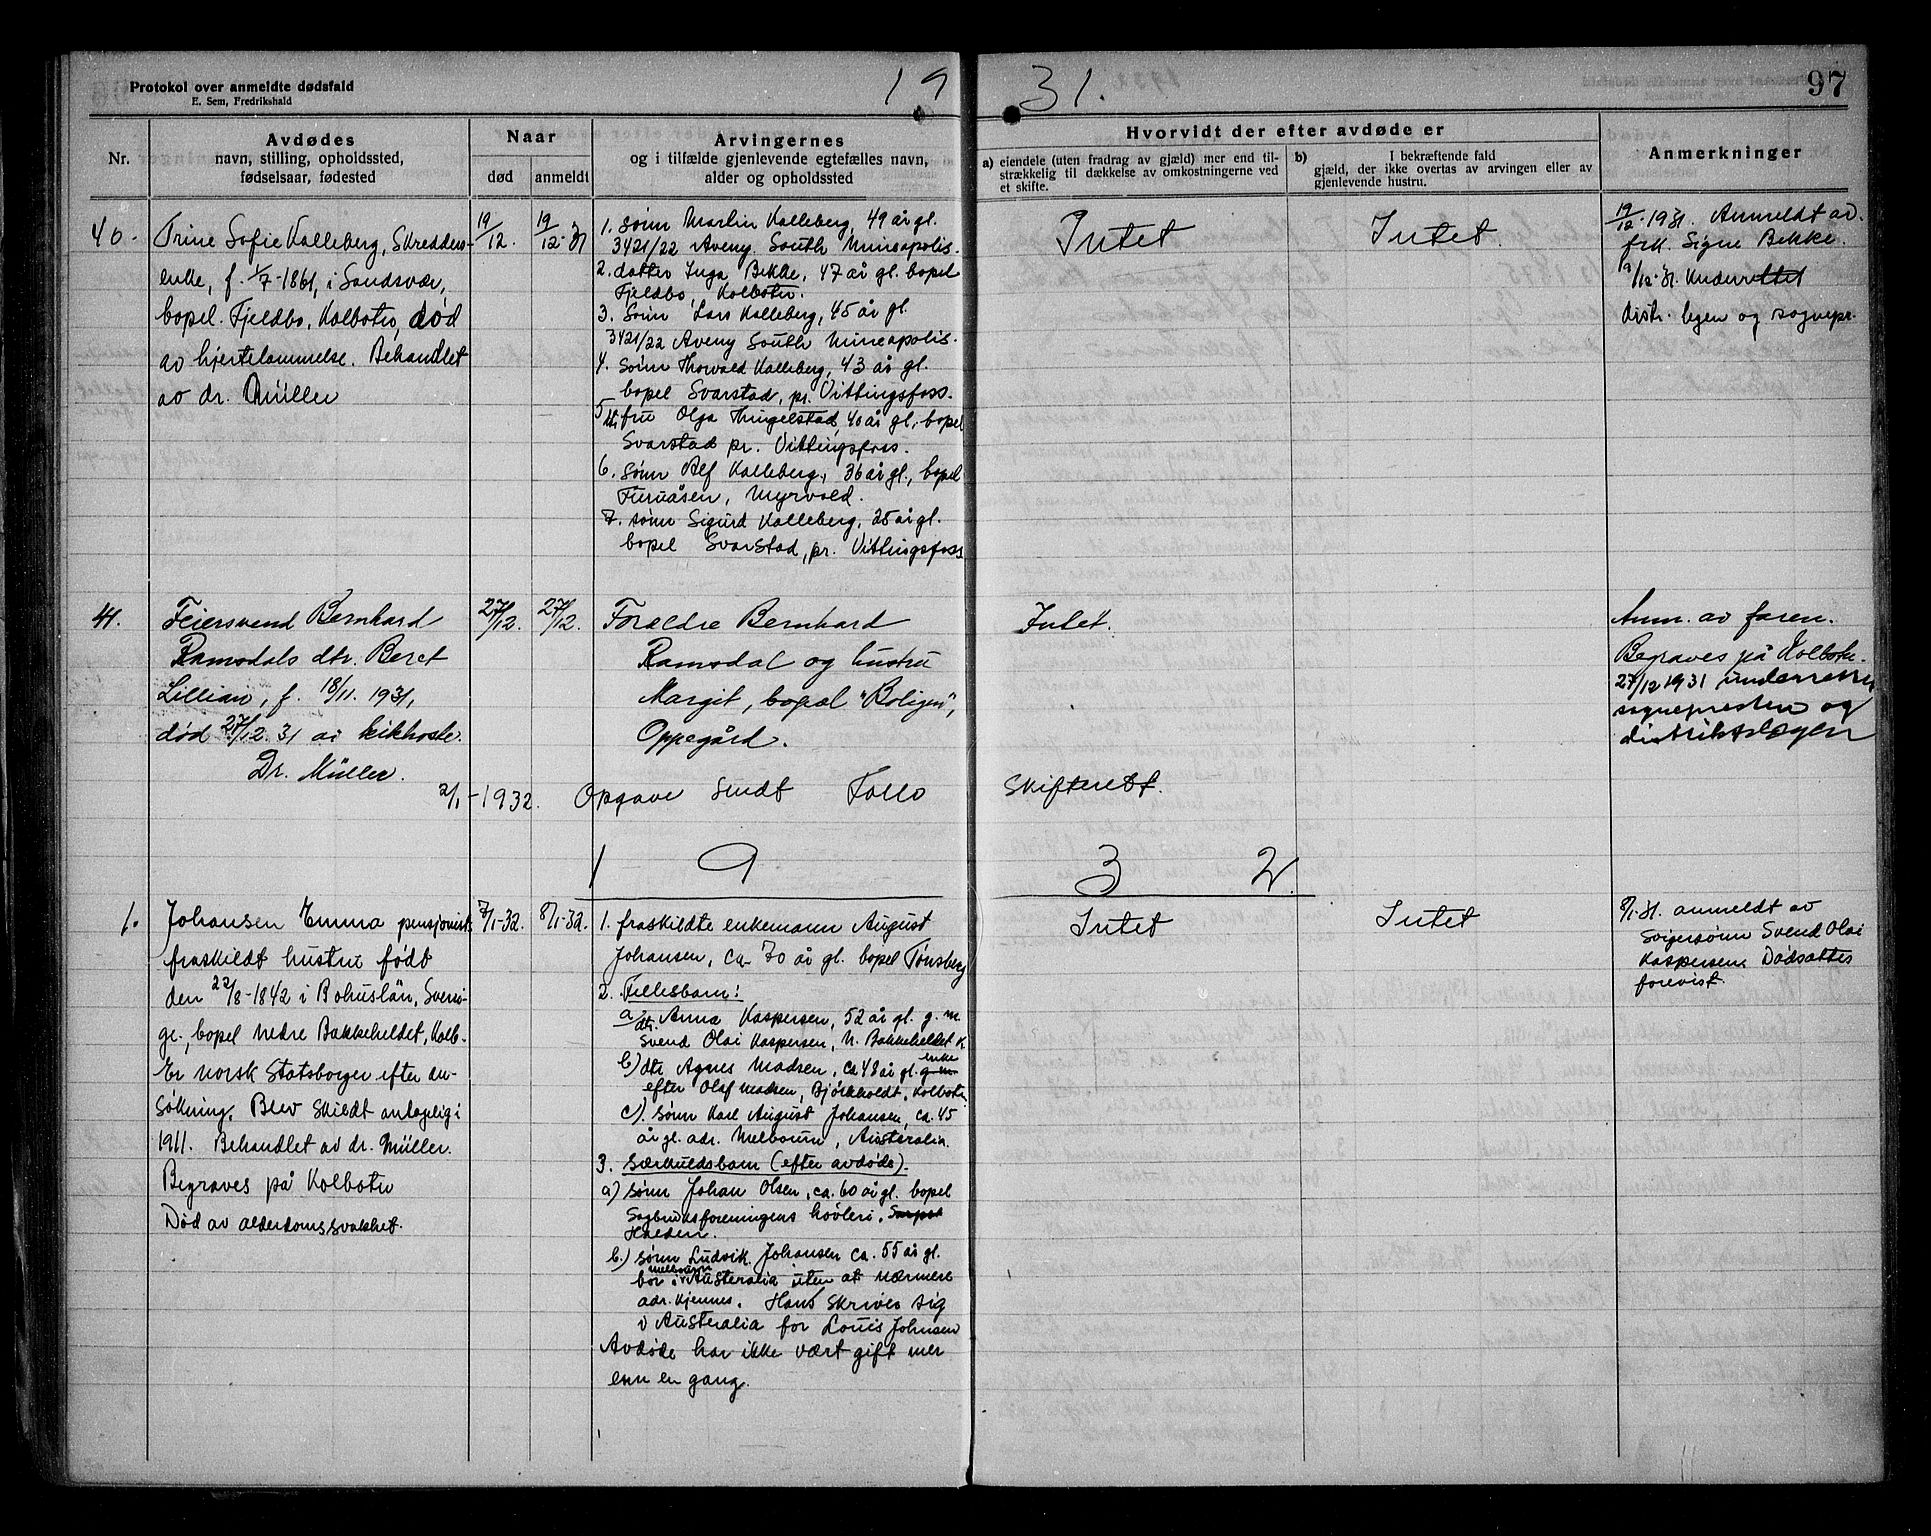 Protokol over anmeldte dødsfald
E. Sem, Fredrikshald
19 31.
97
Nr.
Avdødes
navn, stilling, opholdssted,
fødselsaar, fødested
Naar
død
anmeldt
Arvingernes
og i tilfælde gjenlevende egtefælles navn,
alder og opholdssted
Hvorvidt der efter avdøde er
a) eiendele (uten fradrag av gjæld) mer end til-
strækkelig til dækkelse av omkostningerne ved
et skifte.
b) I bekræftende fald
gjæld, der ikke overtas av arvingen eller av
gjenlevende hustru.
Anmerkninger
40.
Trine Sofie Kalleberg, Skredders-
enke, f. 1/7-1861, i Sandsvær,
bopel. Fjeldbo, Kolbotn, død
av hjertelammelse. Behandlet
av dr. Müller
19/12.
19/12-31
1. sønn Martin Kalleberg, 49 år gl.
3421/22 Aveny South Mineapolis.
2. datter Inga Bekke, 47 år gl. bopel
Fjeldbo, Kolbotn.
3. Sønn Lars Kalleberg, 45 år gl.
3421/22 Aveny South Mineapolis.
4. Sønn Thorvald Kalleberg, 43 år gl.
bopel Svarstad, pr. Vittingsfoss.
5. fru Olga Hingelstad, 40 år gl., bopel
Svarstad pr. Vittingsfoss.
6. sønn Alf Kalleberg, 36 år gl., bopel
Furuåsen, Myrvold.
7. sønn Sigurd Kalleberg, 25 år gl.
bopel Svarstad, pr. Vittingsfoss
Intet
Intet.
19/12-1931. Anmeldt av
frk. Signe Bekke.
19/12-31. Underrettet
distr. legen og sognepr.
41.
Feiersvend Bernhard
Ramsdals dtr. Beret
Lillian, f. 18/11. 1931,
død 27/12. 31 av kikhoste.
Dr. Müller.
27/12.
27/12.
Foreldre Bernhard
Ramsdal og hustru
Margit, bopæl "Boligen",
Oppegård.
Intet.
Anm. av faren.
Begraves på Kolbotn.
27/12 1931
sognepresten og
distriktslægen
2/1-1932. Opgave sendt Follo Skifterett.
19 32.
1.
Johansen Emma pensjonist
fraskildt hustru født
den 22/8-1842 i Bohuslän, Sveri-
ge, bopel Nedre Bakkeheldet, Kolb-
Er norsk Statsborger efter an-
søkning. Blev skildt antagelig i
1911. Behandlet av dr. Müller.
Begraves på Kolbotn
Død av alderdomssvakhet.
7/1-32.
8/1-32.
1. fraskildte enkemann August
Johansen, ca 70 år gl. bopel Tønsberg
2. Fellesbarn:
a. dtr. Anna Kaspersen, 52 år gl. g. m.
Svend Olai Kaspersen, N. Bakkeheldet K.
b) dtr Agnes Madsen, ca 48 år gl. enke
efter Olaf Madsen, Bjørkholdt, Kolbotn
c). sønn Karl August Johansen, ca. 45
år gl. adr. Melbourn, Australia.
3. Særkuldsbarn (efter avdøde).
a) sønn Johan Olsen, ca. 60 år gl. bopel
Sagbruksforeningens høvleri,
Halden.
b.) sønn Ludvik Johansen ca. 55 år gl.
bor i Melbourn Australia uten at nærmere
adr. kjennes. Hans skrives sig
i Australia for Louis Johnsen
Avdøde har ikke vært gift mer
enn en gang.
Intet
Intet
8/1-31. anmeldt av
Svigersønn Svend Olai
Kaspersen. Dødsattes
forevist.